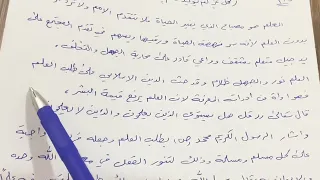 العلم هو مصباح الذي ينير الحياة فلا تتقدم الامم ولا تزدهر
بدون العلم لأنه سر نهضة الحياة ورقيها ويسهم في تقدم المجتمع على
جيل متعلم مثقف وواعي قادر على محاربة الجهل والتخلف
العلم نور والجهل ظلام وقد حث الدين الاسلامي على طلب العلم
وهو أداة من أدوات المعرفة لأن العلم يرفع قيمة البشر
قال تعالى هل يستوي الذين يعلمون والذين لا يعلمون
وأشار الرسول الكريم محمد بطلب العلم وجعله واجبة
على كل مسلم ومسلمة وذلك لتنور العقول الله